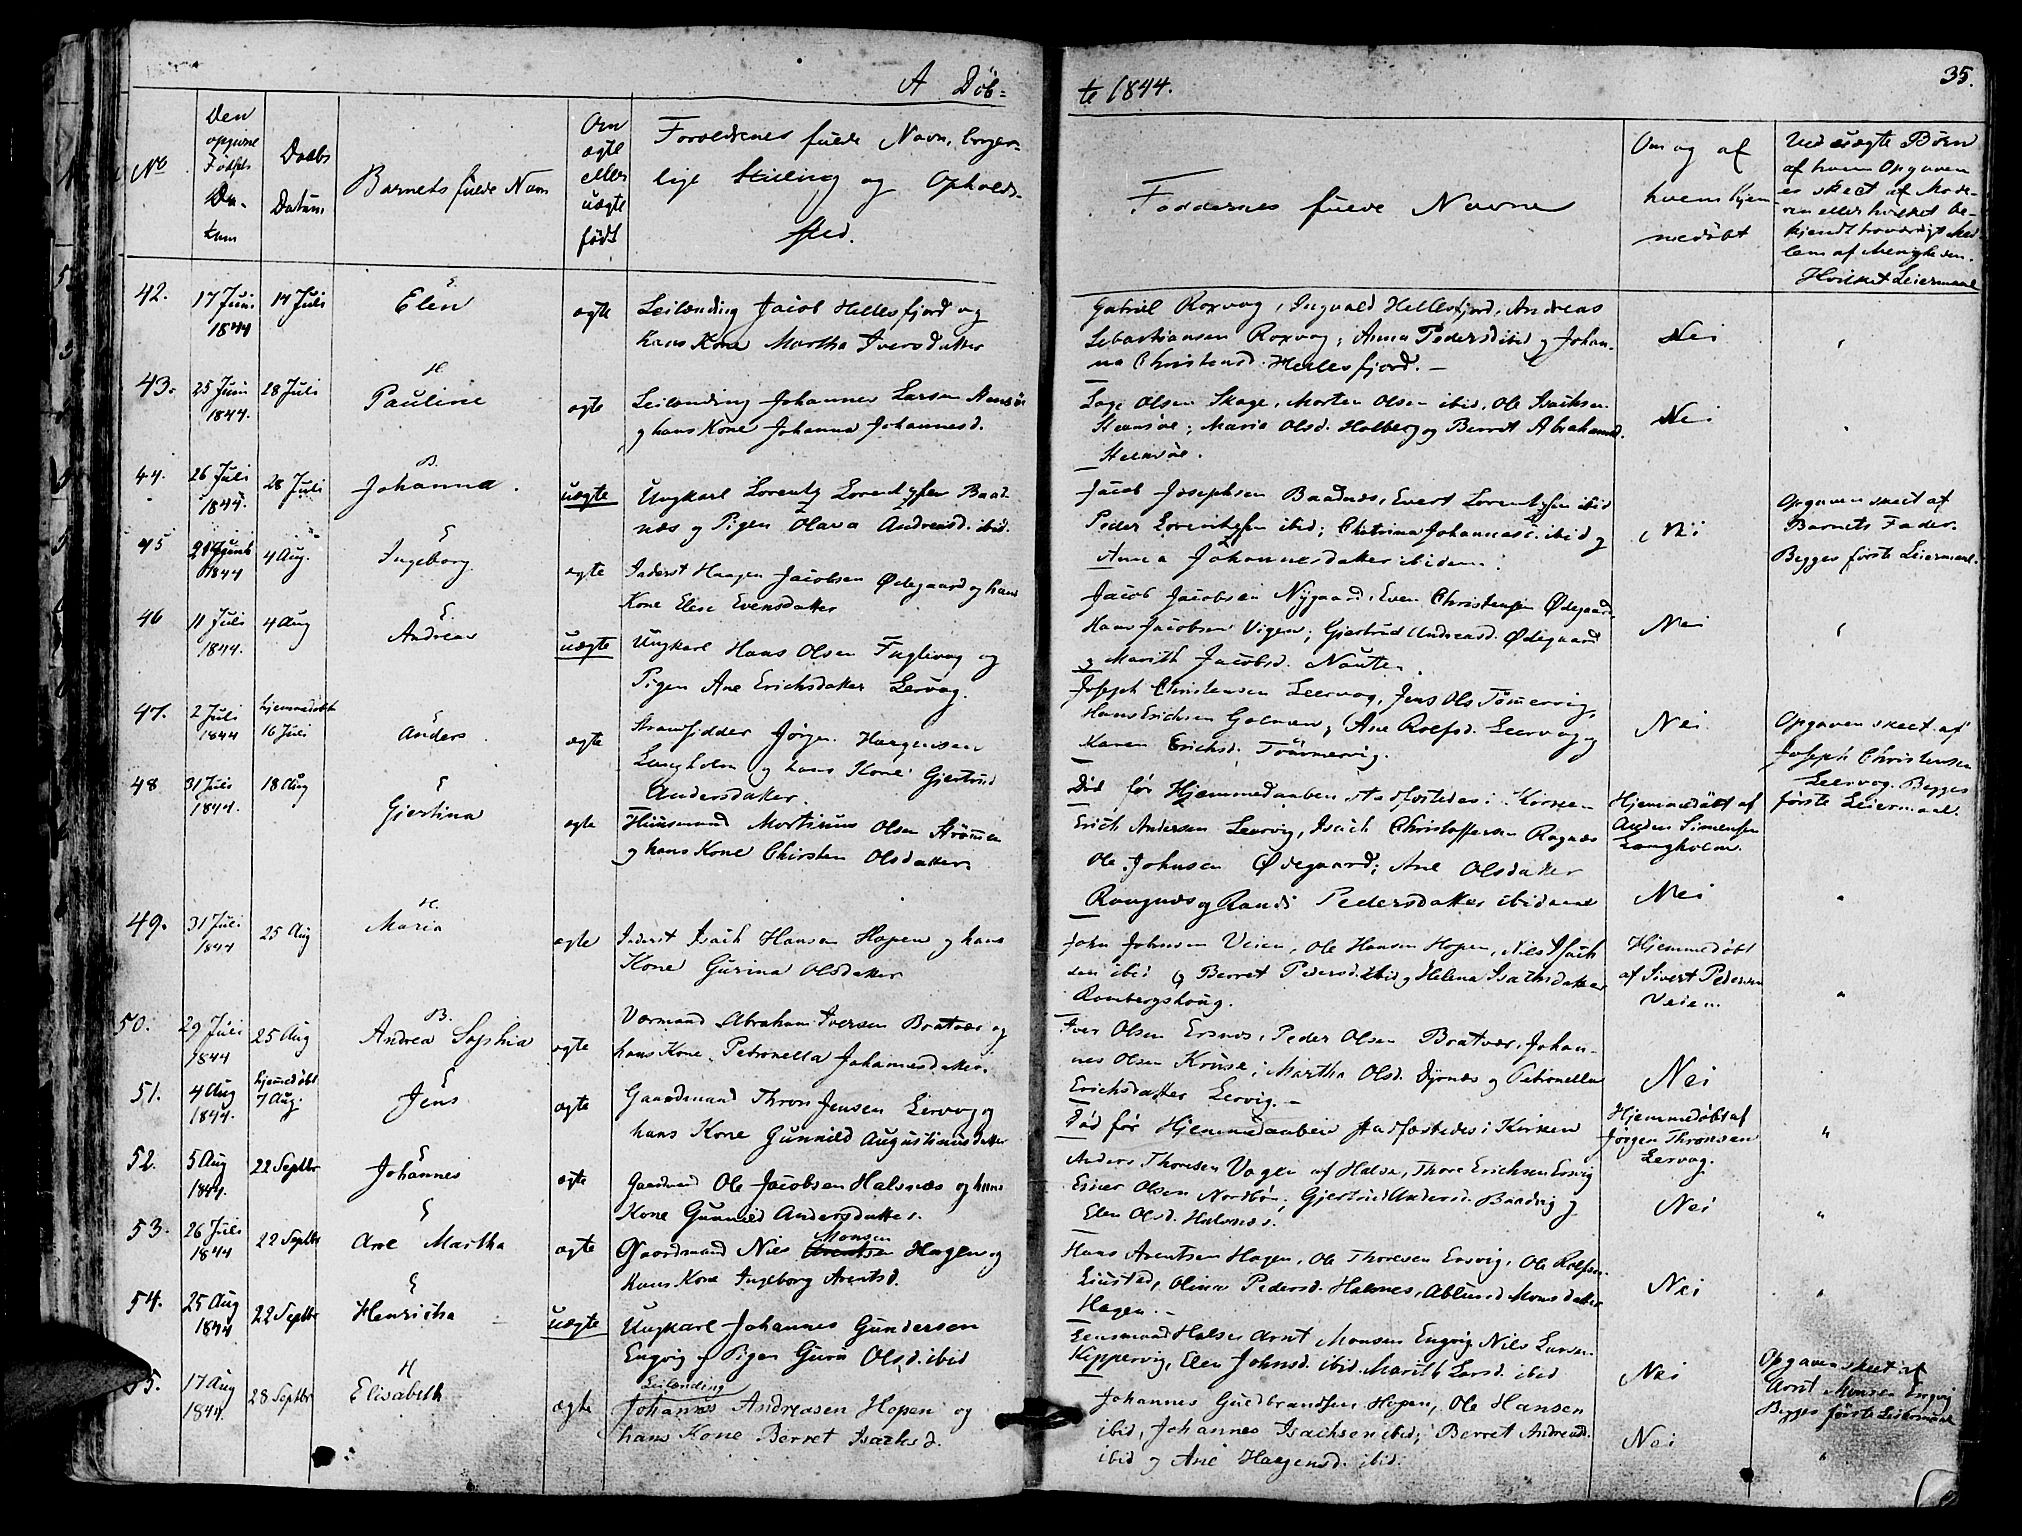 A Døb-
te 1844.
35.
No
Den opgivne Fødsels Datum
Daabs Datum
Barnets fulde Navn
Om ægte eller uægte født
Forældrenes fulde Navn, borger-
lige Stilling og Opholds-
sted.
Faddernes fulde Navne
Om og af
hvem hjem-
medøbt
Ved uægte Børn
af hvem Opgaven
er skeet af Mode-
ren eller hvilket be-
kjendt troværdigt Med-
lem af Menigheden.
Hvilket Leiermaal
42. 17 Juni 1844 14 Juli E Elen ægte
Leilænding Jacob Hellesfjord og
hans Kone Martha Iversdatter
Gabriel Roxvog, Ingvald Hellesfjord, Andreas
Sebastiansen Roxvog; Anna Pedersd ibid og Johan-
na Christensd. Hellesfjord. –
Nei
43. 25 Juni 1844. 28 Juli H. Pauline ægte
Leilænding Johannes Larsen
og hans Kone Johanna Johannesd.
Lage Olsen Skage, Morten Olsen ibid, Ole Isachsen
Stensøe; Maria Olsd. Holberg og Berret Abrahamsd.
Stensøe.
Nei
44. 26 Juli 1844. 28 Juli B. Johanna. uægte
Ungkarl Lorentz Lorentzsen Baad-
næs og Pigen Olava Andreasd. ibid.
Jacob Josephsen Baadnæs, Evert Lorentzsen ibid
Peder Lorentzsen ibid; Chatrina Johannesd. ibid og
Anna Johannesdatter ibidem.
Nei
Opgaven skeet af
Barnets Fader.
Begges første Leiermaal.
45 1844 4 Aug. E Ingeborg. ægte
Inderst Haagen Jacobsen Ødegaard og hans
Kone Elese Evensdatter
Jacob Jacobsen Nygaard, Even Christensen Ødegaard,
Hans Jacobsen Vigen; Gjertrud Andreasd. Ødegaard
og Marith Jacobsd. Nauste.
Nei
46 11 Juli 1844. 4 Aug E. Andreas uægte
Ungkarl Hans Olsen Fuglevog og
Pigen Ane Erichsdatter Lervog.
Joseph Christensen Leervog, Jens Ols Tømmervig,
Hans Erichsen Golmen; Ane Rolfsd. Leervog og
Karen Erichsd. Tømmervig.
Nei
Opgaven skeet af
Joseph Christensen
Leervog. Begges
første Leiermaal.
47. 2 Juli 1844 hjemmedøbt 16 Juli E Anders ægte
Strandsidder Jørgen Haagensen
Langholm og hans Kone Gjertrud
Andersdatter.
Død før Hjemmedaaben stadfæstedes i Kirken
Hjemmedøbt af
Anders Simensen
Langholm.
48 31 Juli 1844. 18 Aug E Gjertina ægte
Huusmand Mortinus Olsen Strømmen
og hans Kone Chirsten Olsdatter.
Erich Andersen Leervig, Isach Christoffersen Rognæs
Ole Johnsen Ødegaard; Ane Olsdatter
Rangnæs og Randi Pedersdatter ibidem
Nei
49. 31 Juli 1844 25 Aug H. Maria ægte
Inderst Isach Hansen Hopen og hans
Kone Gurina Olsdatter
John Johnsen Veien, Ole Hansen Hopen, Niels Isach
sen ibid og Berret Pedersd. ibid og Helena Isachsdatter
Rambergshoug.
Hjemmedøbt
af Sivert Pedersen
Veien.
50. 29 Juli 1844 25 Aug B. Andrea Sophia ægte
Værmand Abraham Iversen Bratvær og
hans Kone Petronella Johannesdatter.
Iver Olsen Ersnæs, Peder Olsen Bratvær, Johan-
nes Olsen Kruse; Martha Olsd. Dyrnæs og Petronella
Erichsdatter Lervig. –
Nei
51. 4 Aug 1844. hjemmedøbt 7 Aug. E Jens ægte
Gaardmand Thron Jensen Lervog og
hans Kone Gunnild Augustinusdatter
Død før Hjemmedaaben stadfæstedes i Kirken
Hjemmedøbt af
Jørgen Thronsen
Lervog.
52. 5 Aug 1844. 22 Septbr E Johannes ægte
Gaardmand Ole Jacobsen Halsnæs og hans
Kone Gunnild Andersdatter.
Anders Thoresen Vaglen af Halse, Thore Erichsen Ersvig
Esner Olsen Nordbøn; Gjertrud Andersd. Baadvig og
Elen Olsd. Halsnæs.
Nei
53. 26 Juli 1844 22 Septbr E Ane Martha ægte
Gaardmand Niels Monsen Hagen og
hans Kone Ingeborg Arentsd.
Hans Arentsen Hagen, Ole Thoresen Ersvig, Ole Rolfsen
Liustad, Olina Pedersd. Halsnes, Ablund Monsdatter
Hagen. –
Nei
54. 25 Aug 1844 22 Septbr E Henricha uægte
Ungkarl Johannes Gundersen
Engvig og Pigen Guru Olsd. ibid
Lensmand Halse Arnt Monsen Engvig Niels Larsen
Keppervig, Elen Johnsd. ibid. Marith Larsd. ibid
Nei
Opgaven skeet af
Arnt Monsen Engvig
Begges første Leiermaal
55. 17 Aug 1844. 28 Septbr H Elisabeth ægte
Leilænding
Johannes Andreasen Hopen og
hans Kone Berret Isachsd.
Johannes Gudbrandsen Hopen, Ole Hansen
ibid, Johannes Isachsen ibid; Berret Andreasd.
ibid og Ane Haagensd. ibid.
Nei